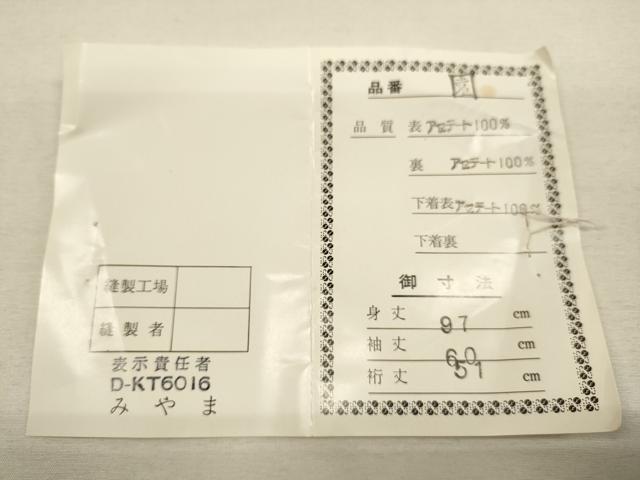 縫製工場
縫製者
表示責任者
D-KT6016
みやま
品番
品質 表 アセテート100%
裏 アセテート100%
下着表 アセテート100%
下着裏
御寸法
身丈 97 cm
袖丈 60 cm
裄丈 51 cm